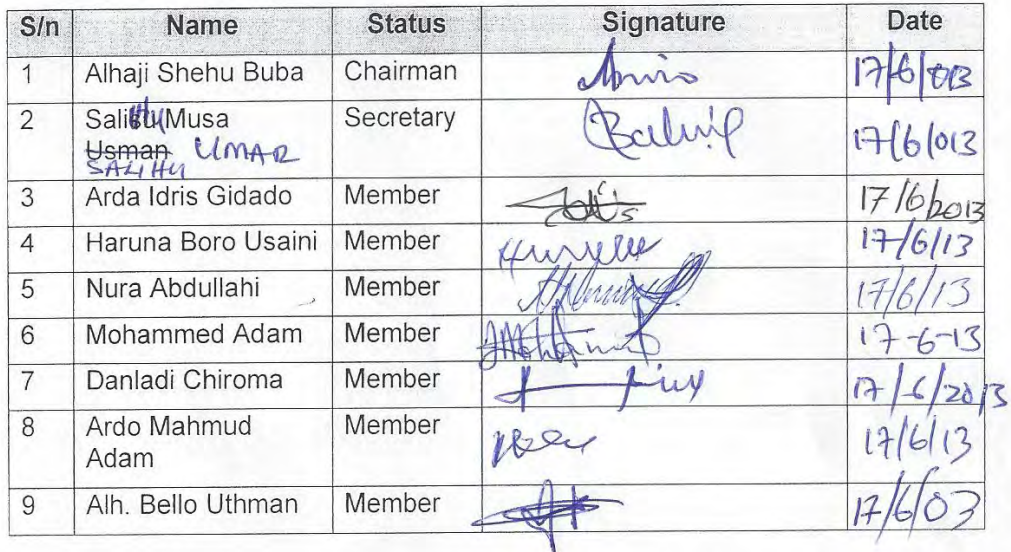 S/n Name Status Signature Date
1 Alhaji Shehu Buba Chairman 17/6/013
2 Salihu Musa Secretary 17/6/013
Usman UMAR
SALIHU
3 Arda Idris Gidado Member 17/6/2013
4 Haruna Boro Usaini Member 17/6/13
5 Nura Abdullahi Member 17/6/13
6 Mohammed Adam Member 17-6-13
7 Danladi Chiroma Member 17/6/2013
8 Ardo Mahmud Member 17/6/13
Adam
9 Alh. Bello Uthman Member 17/6/03